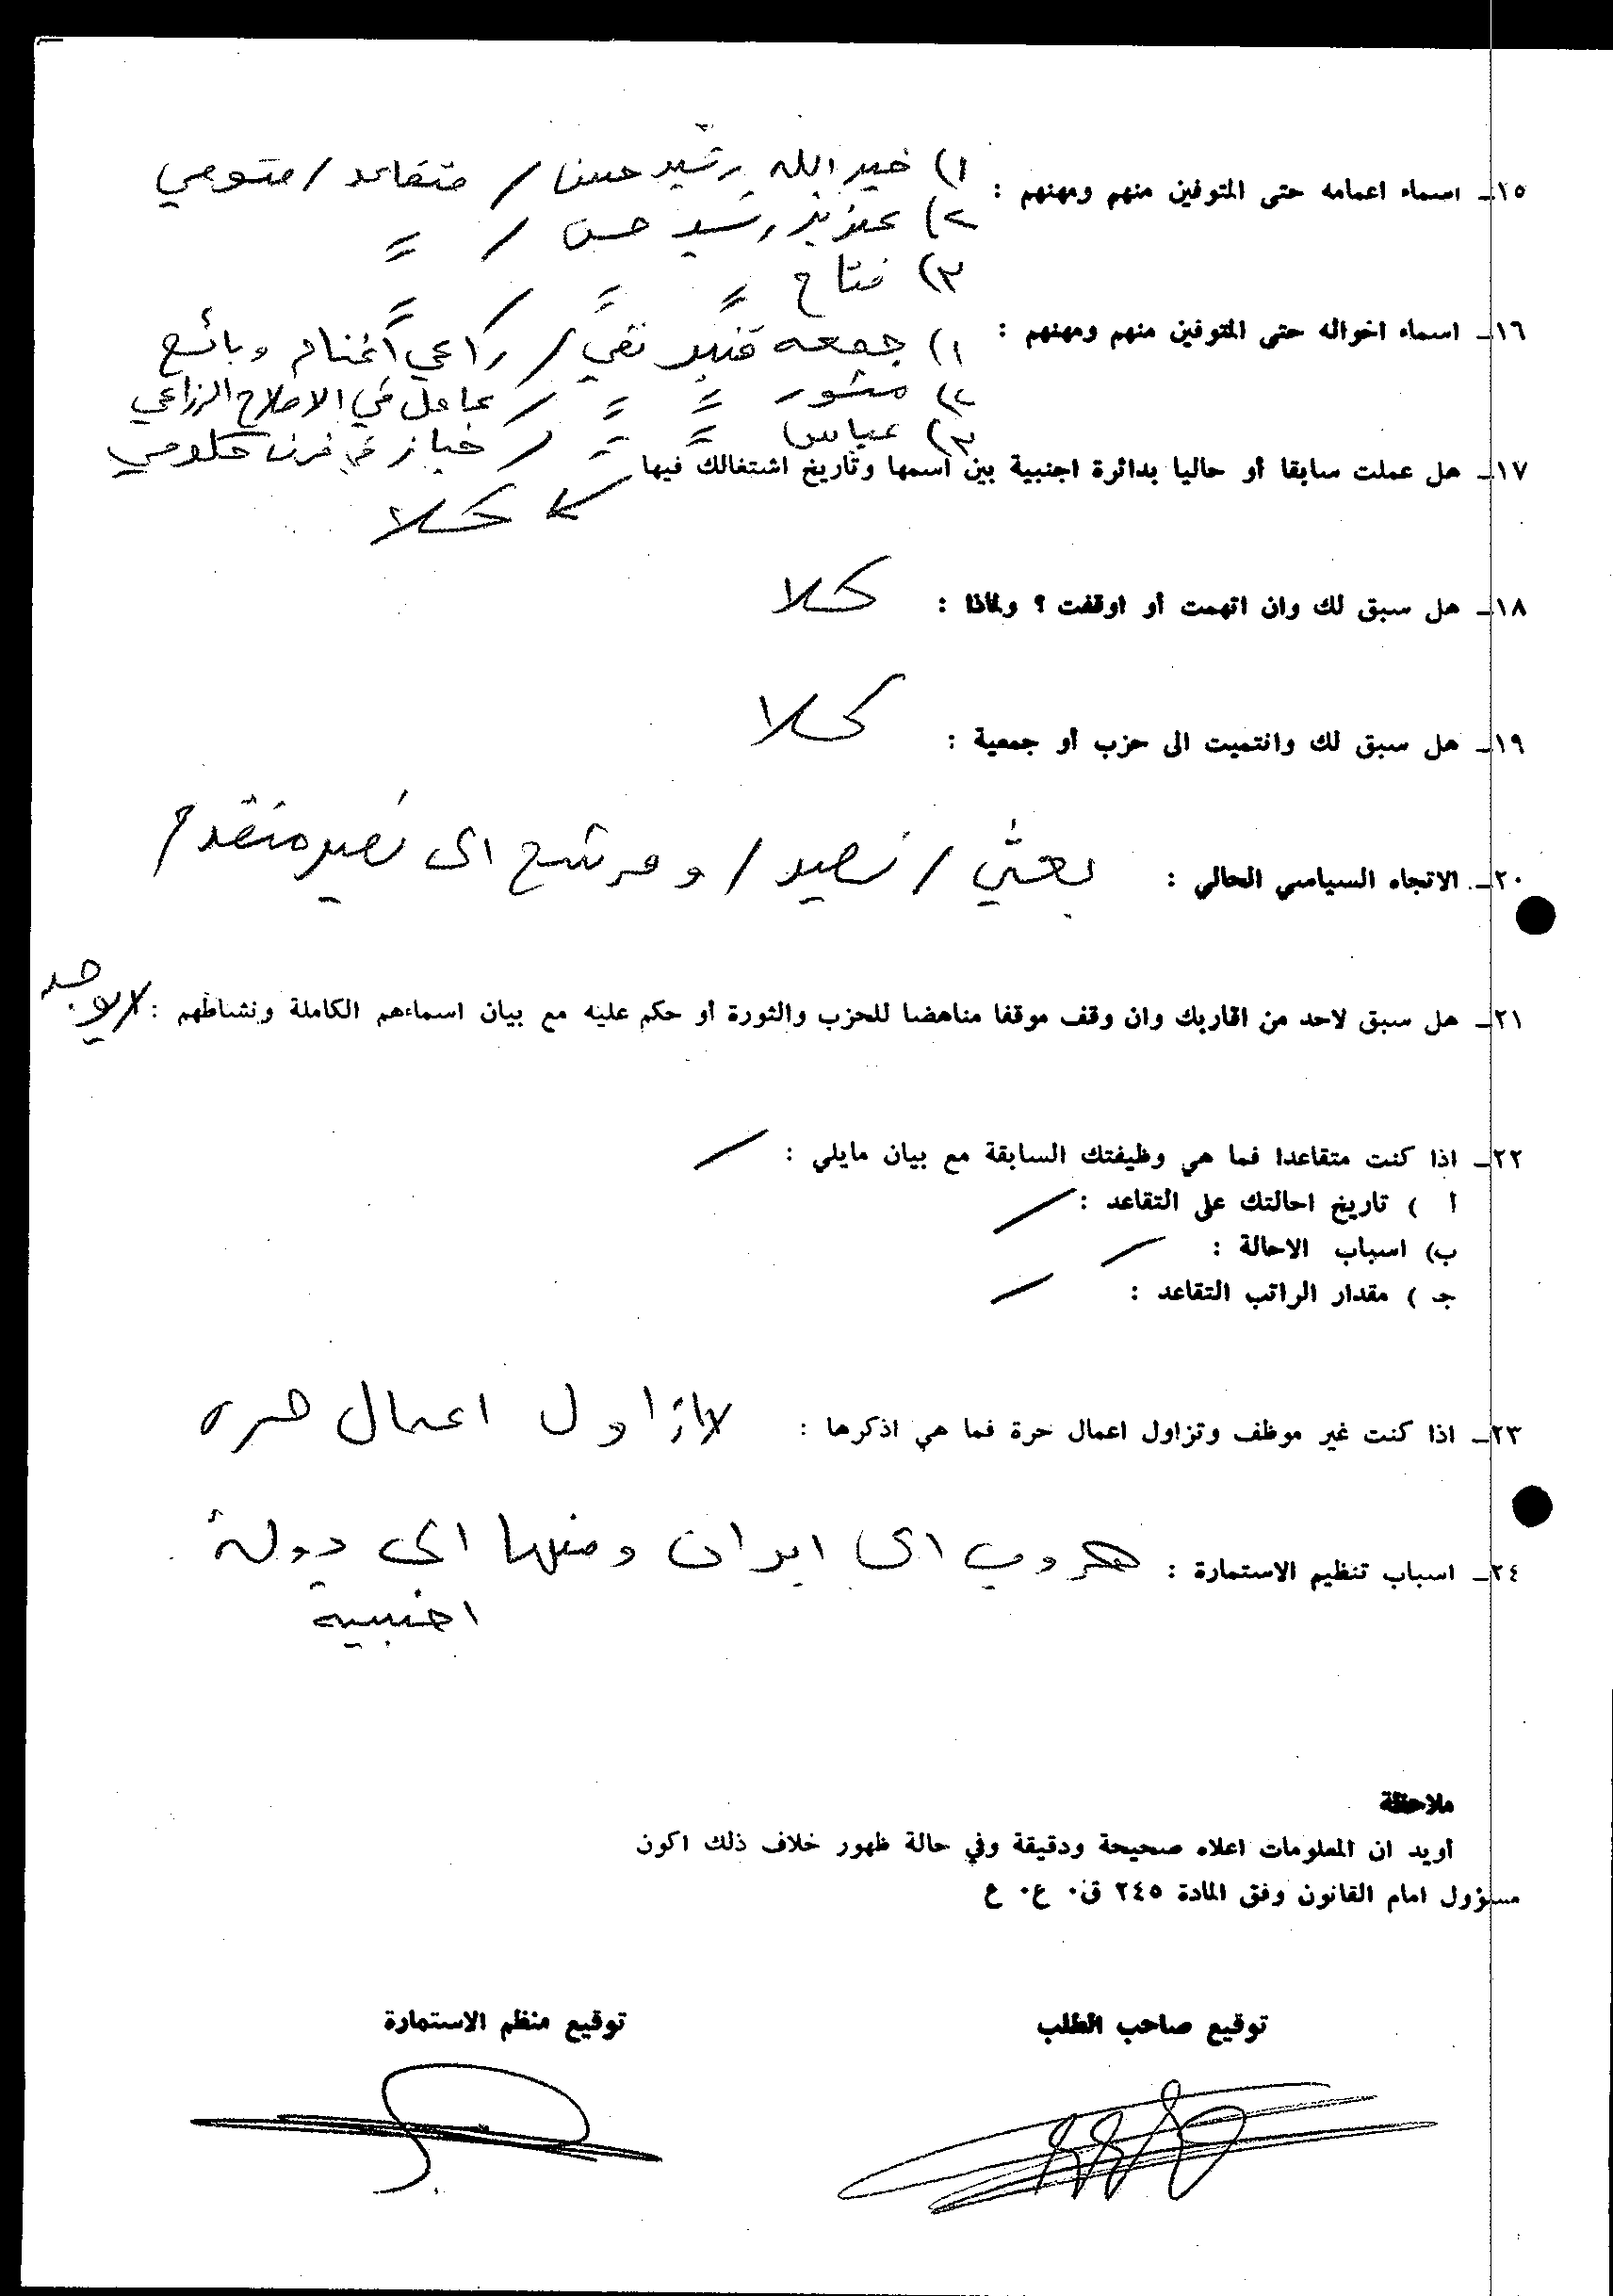 ١٥ـ اسماء اعمامه حتى المتوفين منهم ومهنهم : ١) خير الله رشيد حسن / متقاعد / متوفي
٢) عزيز رشيد حسن / =
٣) فتاح = = / =
١٦ـ اسماء اخواله حتى المتوفين منهم ومهنهم : ١) جمعه قنبر تقي / راعي أغنام وبائع
٢) منشور = = / عامل في الاصلاح الزراعي
٣) عباس = = / خباز في فرن حكومي
١٧ـ هل عملت سابقا أو حاليا بدائرة اجنبية بين اسمها وتاريخ اشتغالك فيها
كلا
١٨ـ هل سبق لك وان اتهمت أو اوقفت ؟ ولماذا : كلا
١٩ـ هل سبق لك وانتميت الى حزب أو جمعية : كلا
٢٠ـ الاتجاه السياسي الحالي : بعثي / نصير / ومرشح الى نصير متقدم
٢١ـ هل سبق لاحد من اقاربك وان وقف موقفا مناهضا للحزب والثورة أو حكم عليه مع بيان اسماءهم الكاملة ونشاطهم : لايوجد
٢٢ـ اذا كنت متقاعدا فما هي وظيفتك السابقة مع بيان مايلي : /
أ ) تاريخ احالتك على التقاعد : /
ب) اسباب الاحالة : /
جـ ) مقدار الراتب التقاعد : /
٢٣ـ اذا كنت غير موظف وتزاول اعمال حرة فما هي اذكرها : لاازاول اعمال حره
٢٤ـ اسباب تنظيم الاستمارة : هروب الى ايران ومنها الى دولة
اجنبيه
ملاحظة
أويد ان المعلومات اعلاه صحيحة ودقيقة وفي حالة ظهور خلاف ذلك اكون
مسؤول امام القانون وفق المادة ٢٤٥ ق٠ ع٠ ع
توقيع صاحب الطلب توقيع منظم الاستمارة